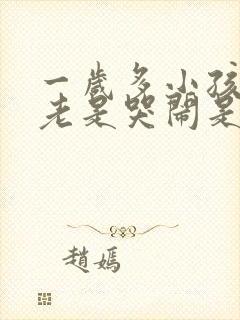 一歲多小孩
老是哭鬧是
趙媽